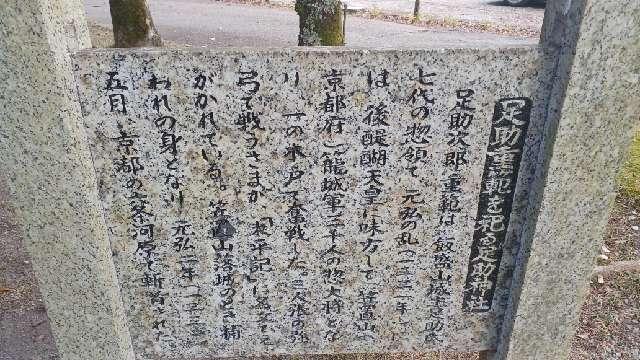 足助重範を祀る足助神社
足助次郎重範は、飯盛山城主足助氏
七代の惣領で、元弘の乱(一三三一年)に
は、後醍醐天皇に味方して、笠置山(
京都府)籠城軍三千人の惣大将とな
り、一の木戸で奮戦した。三人張の強
弓で戦うさまが、「太平記」に
がかれている。笠置山落城のとき捕
われの身となり、元弘二年(一三三二)
五月、京都の六条河原で斬首された。